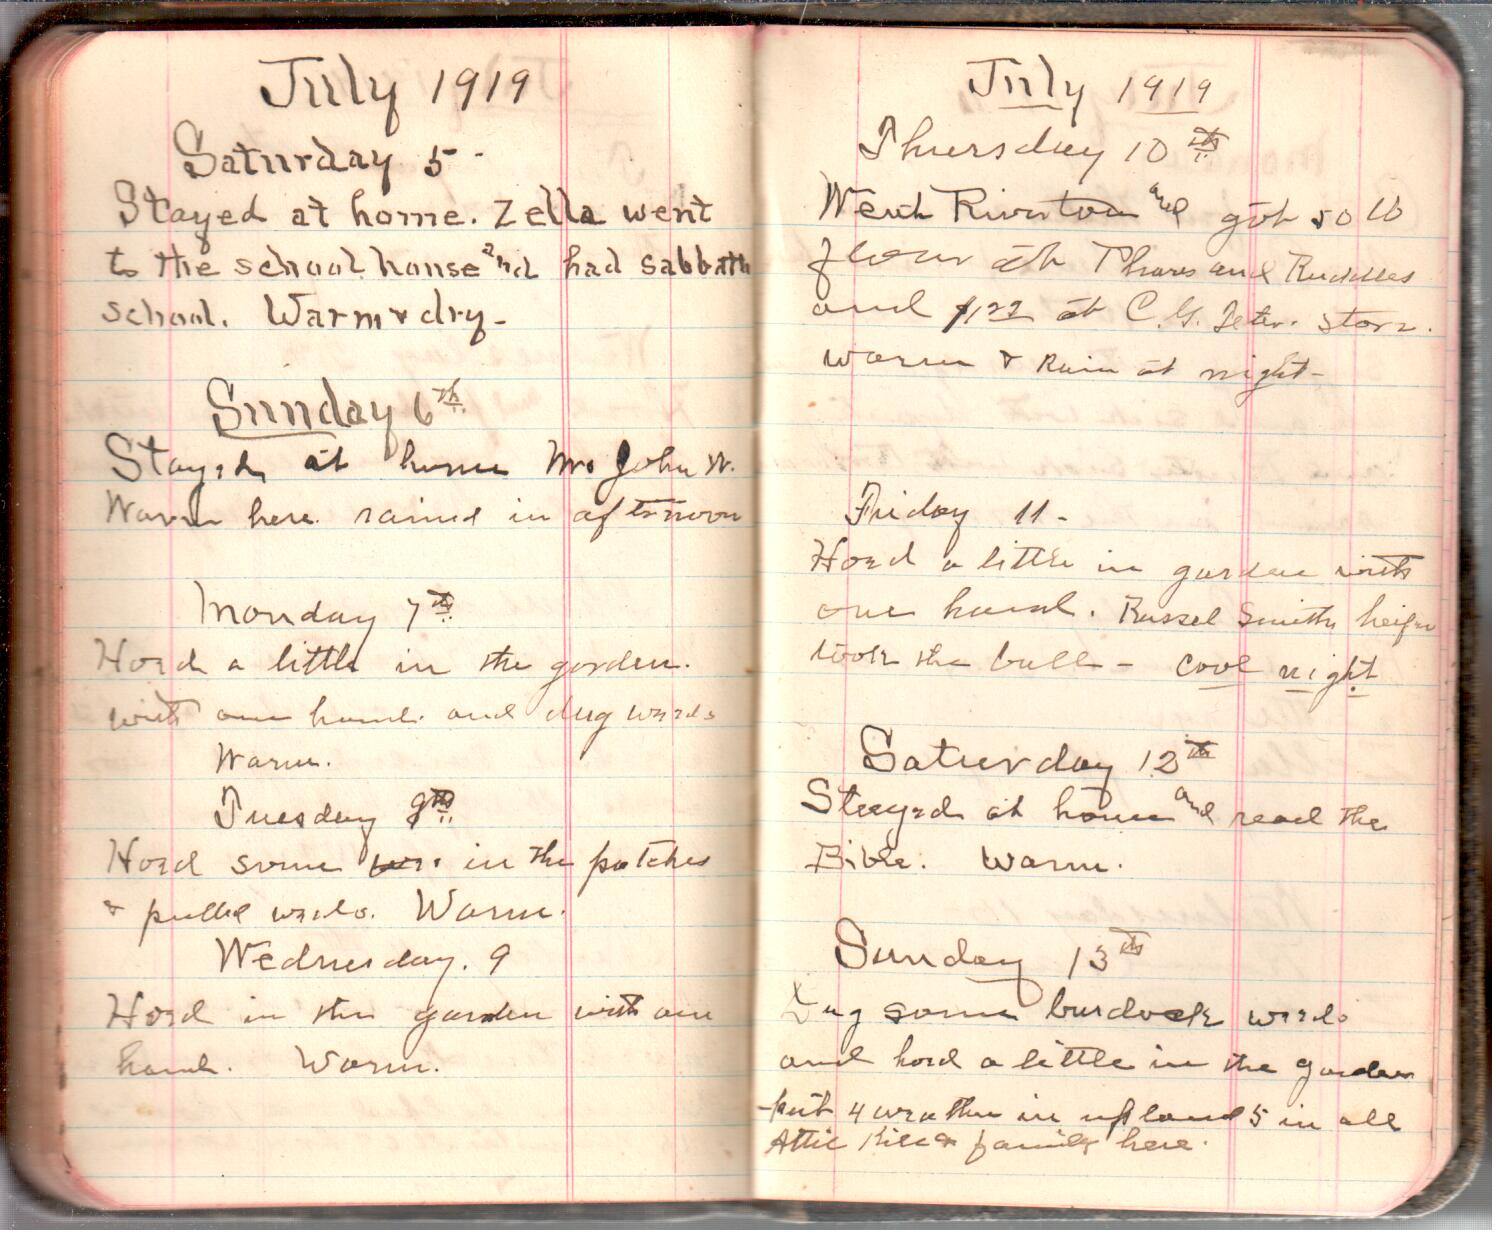 July 1919
Saturday 5 -
Stayed at home. Zella went
to the school house and had sabbath
school. Warm & dry -
Sunday 6th
Stayed at home Mr. John W.
Warm here. rained in afternoon
Monday 7th
Hoed a little in the garden.
with one hand. and dug weeds
Warm.
Tuesday 8th
Hoed some in the patches
& pulled weeds. Warm.
Wednesday. 9
Hoed in the garden with one
hand. Warm.
July 1919
Thursday 10th
Went Riverton and got 50 lb
flour at and Ruddles
and $1.22 at C. G. store.
warm & Rain at night -
Friday 11 -
Hoed a little in garden with
one hand. Russel Smiths heifer
took the bull - cool night
Saturday 12th
Stayed at home and read the
Bible. Warm.
Sunday 13th
Dug some burdock weeds
and hoed a little in the garden
put 4 in upland 5 in all
Attie & family here.